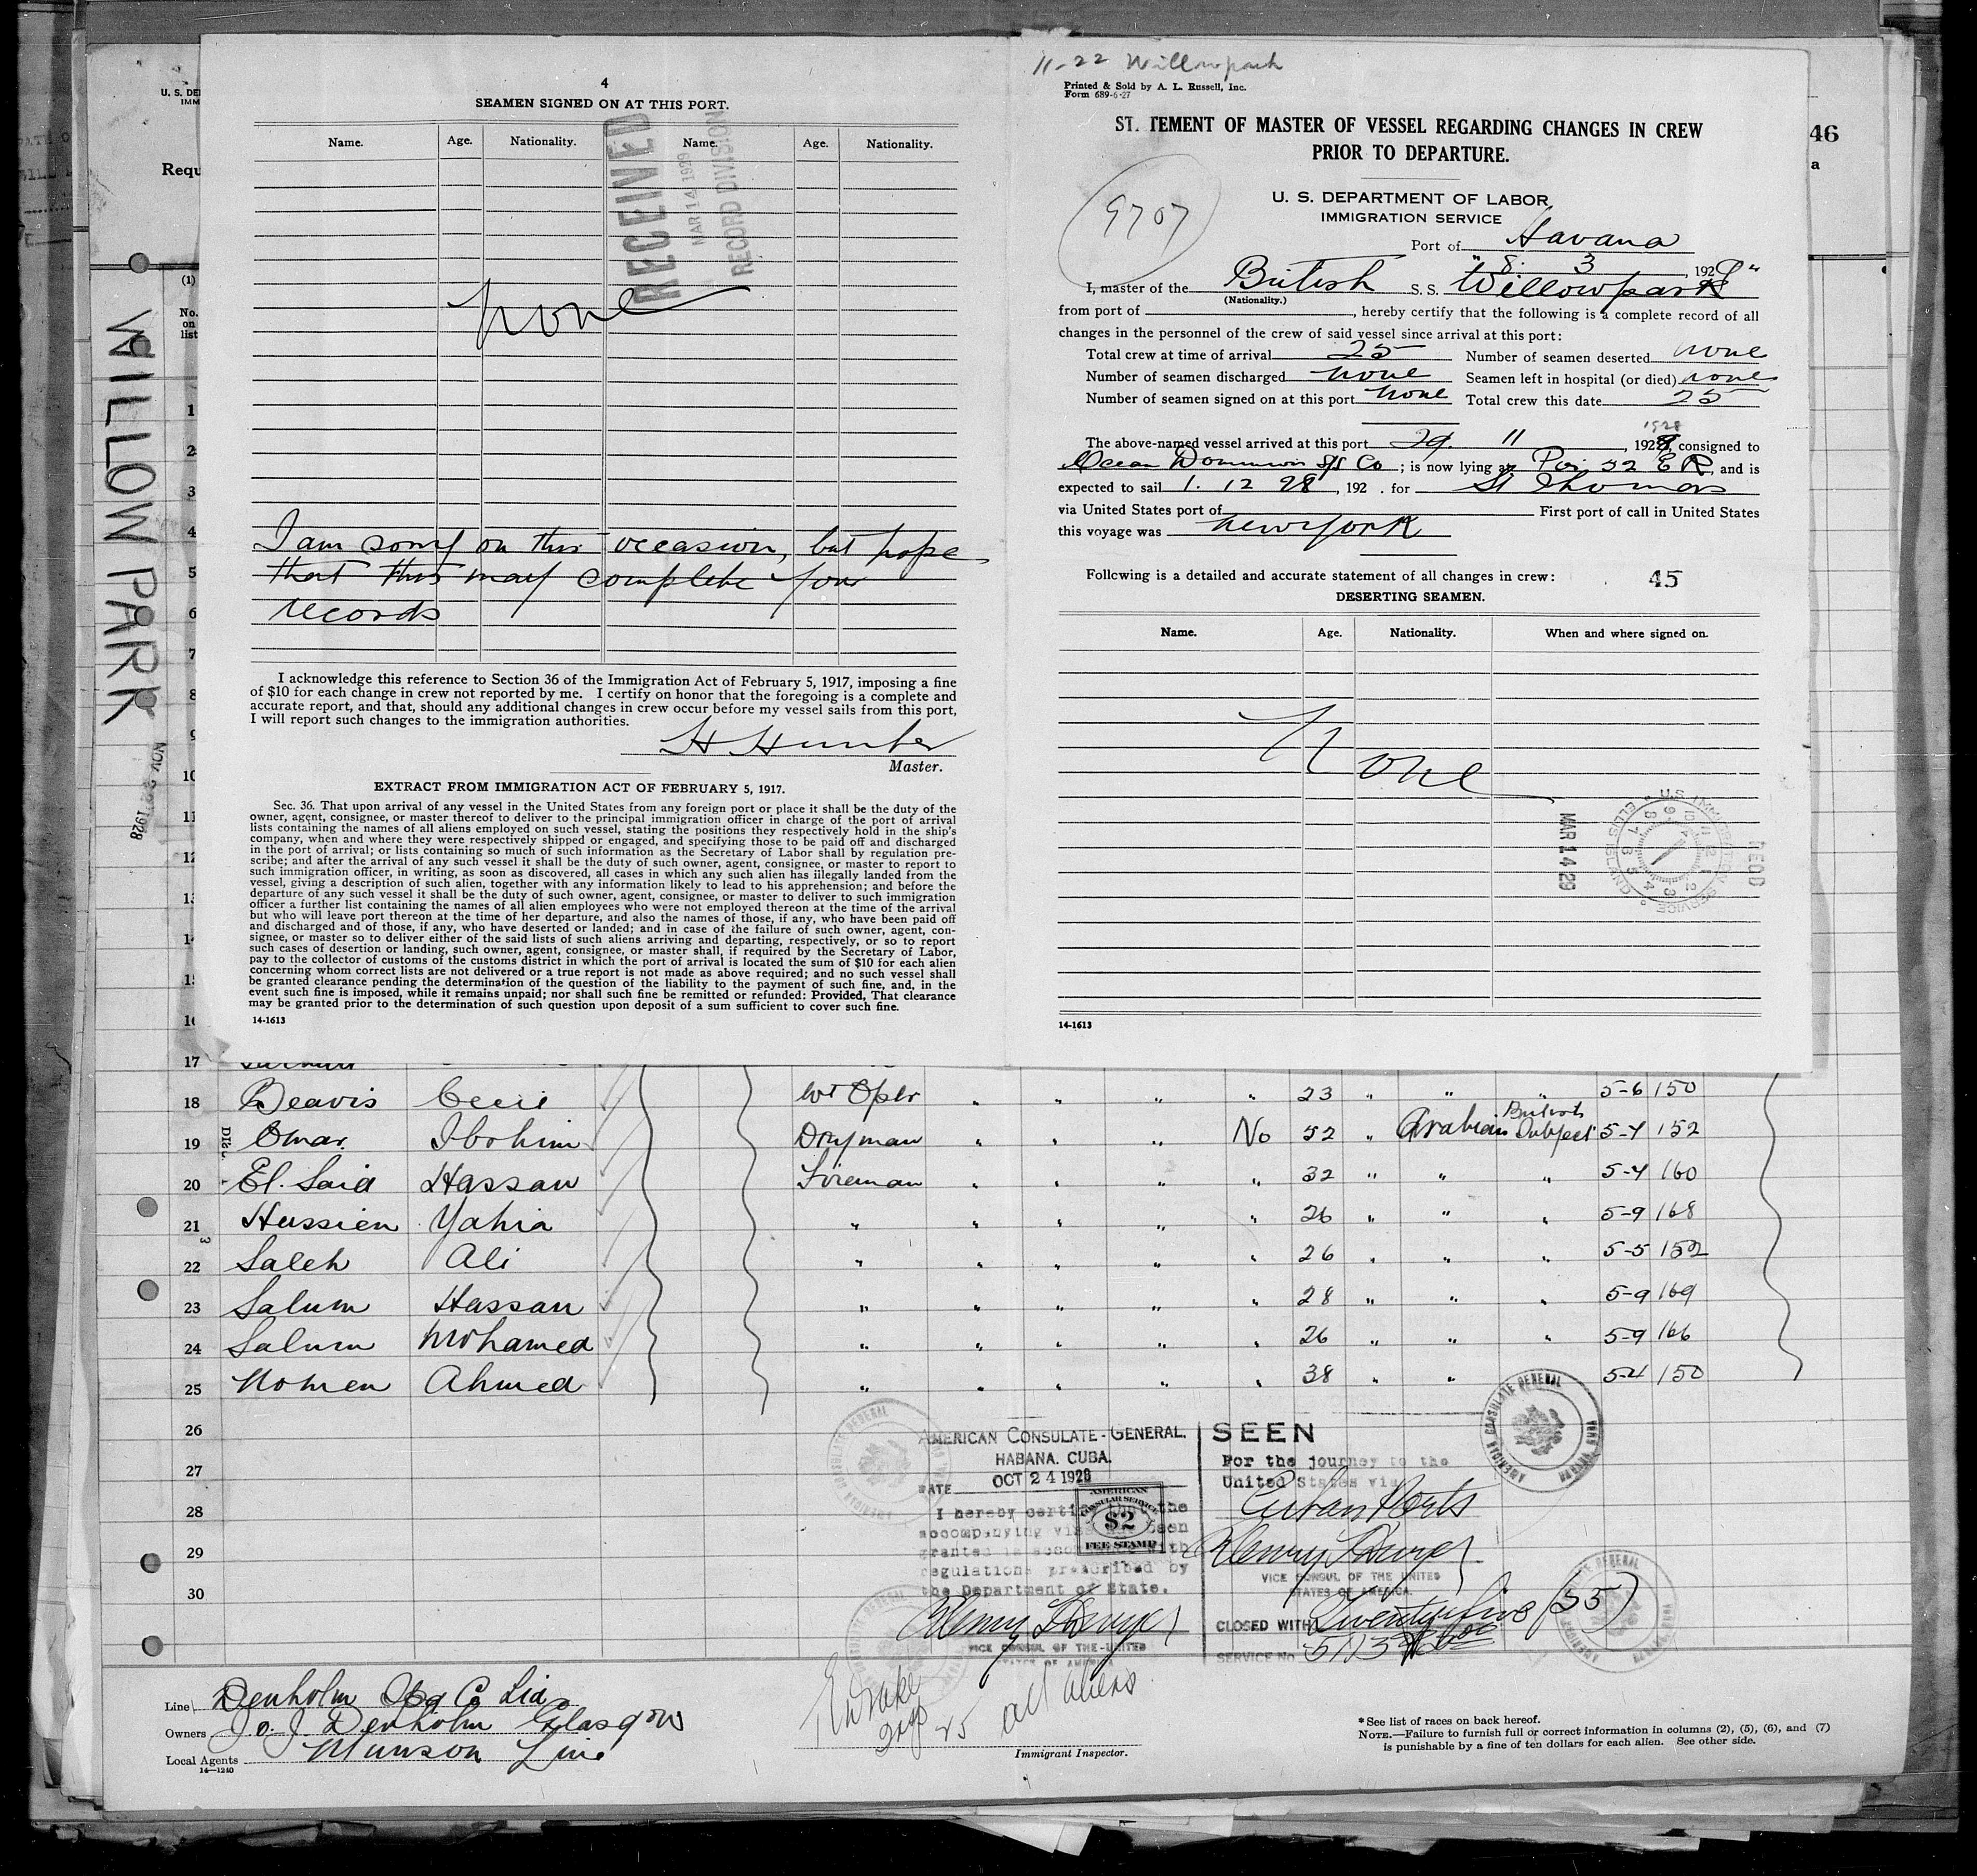 4
SEAMEN SIGNED ON AT THIS PORT.
Name. Age. Nationality. Name. Age. Nationality.
RECEIVED
MAR 14 1929
RECORD DIVISION
none
I am sorry on this occasion, but hope
that this may complete your
records
I acknowledge this reference to Section 36 of the Immigration Act of February 5, 1917, imposing a fine
of $10 for each change in crew not reported by me. I certify on honor that the foregoing is a complete and
accurate report, and that, should any additional changes in crew occur before my vessel sails from this port,
I will report such changes to the immigration authorities.
H Hunter
Master.
EXTRACT FROM IMMIGRATION ACT OF FEBRUARY 5, 1917.
Sec. 36. That upon arrival of any vessel in the United States from any foreign port or place it shall be the duty of the
owner, agent, consignee, or master thereof to deliver to the principal immigration officer in charge of the port of arrival
lists containing the names of all aliens employed on such vessel, stating the positions they respectively hold in the ship's
company, when and where they were respectively shipped or engaged, and specifying those to be paid off and discharged
in the port of arrival; or lists containing so much of such information as the Secretary of Labor shall by regulation pre-
scribe; and after the arrival of any such vessel it shall be the duty of such owner, agent, consignee, or master to report to
such immigration officer, in writing, as soon as discovered, all cases in which any such alien has illegally landed from the
vessel, giving a description of such alien, together with any information likely to lead to his apprehension; and before the
departure of any such vessel it shall be the duty of such owner, agent, consignee, or master to deliver to such immigration
officer a further list containing the names of all alien employees who were not employed thereon at the time of the arrival
but who will leave port thereon at the time of her departure, and also the names of those, if any, who have been paid off
and discharged and of those, if any, who have deserted or landed; and in case of the failure of such owner, agent, con-
signee, or master so to deliver either of the said lists of such aliens arriving and departing, respectively, or so to report
such cases of desertion or landing, such owner, agent, consignee, or master shall, if required by the Secretary of Labor,
pay to the collector of customs of the customs district in which the port of arrival is located the sum of $10 for each alien
concerning whom correct lists are not delivered or a true report is not made as above required; and no such vessel shall
be granted clearance pending the determination of the question of the liability to the payment of such fine, and, in the
event such fine is imposed, while it remains unpaid; nor shall such fine be remitted or refunded: Provided, That clearance
may be granted prior to the determination of such question upon deposit of a sum sufficient to cover such fine.
14-1613
11-22 Willowpark
Printed & Sold by A. L. Russell, Inc.
Form 689-6-27
ST. TEMENT OF MASTER OF VESSEL REGARDING CHANGES IN CREW
PRIOR TO DEPARTURE.
9707
U. S. DEPARTMENT OF LABOR
IMMIGRATION SERVICE
Port of Havana
8. 3, 1929
I, master of the British S. S. "Willowpark"
(Nationality.)
from port of , hereby certify that the following is a complete record of all
changes in the personnel of the crew of said vessel since arrival at this port:
Total crew at time of arrival 25 Number of seamen deserted none
Number of seamen discharged none Seamen left in hospital (or died) none
Number of seamen signed on at this port none Total crew this date 25
1928
The above-named vessel arrived at this port 29. 11, 1928, consigned to
Ocean Dominion S/S Co; is now lying at Pier 52 E R, and is
expected to sail 1. 12 28, 192 . for St Thomas
via United States port of First port of call in United States
this voyage was New York
Following is a detailed and accurate statement of all changes in crew: 45
DESERTING SEAMEN.
Name. Age. Nationality. When and where signed on.
None
MAR 14 29
U.S. IMMIGRATION SERVICE ELLIS ISLAND
REOD
14-1613
46
a
U. S. DE
IMM
Requ
(1)
No. on list
WILLOW PARK
NOV 22 1928
1
2
3
4
5
6
7
8
9
10
11
12
13
14
15
16
17
18 Beavis Cecil Wt Optr " " " " 23 " " " 5-6 150
19 Omar Ibohim Dnyman " " " No 52 " Arabian British Subject 5-4 152
20 El. Said Hassan Fireman " " " " 32 " " " 5-4 160
21 Hussien Yahia " " " " " 26 " " " 5-9 168
22 Saleh Ali " " " " " 26 " " " 5-5 152
23 Salum Hassan " " " " " 28 " " " 5-9 169
24 Salum Mohamed " " " " " 26 " " " 5-9 166
25 Nomen Ahmed " " " " " 38 " " 5-4 150
26
27
28
29
30
AMERICAN CONSULATE-GENERAL.
HABANA. CUBA.
DATE OCT 24 1928
I hereby certify that the
accompanying visa has been
granted in accordance with
regulations prescribed by
the Department of State.
VICE CONSUL OF THE UNITED
STATES OF AMERICA
AMERICAN
CONSULAR SERVICE
$2
FEE STAMP
SEEN
For the journey to the
United States via
Cuban Ports
VICE CONSUL OF THE UNITED
STATES OF AMERICA.
CLOSED WITH Twentyfive (25)
SERVICE NO. 5113
AMERICAN CONSULATE GENERAL HABANA
Line Denholm Ltd
Owners J. & J. Denholm Glasgow
Local Agents Munson Line
14-1240
25 all aliens
Immigrant Inspector.
*See list of races on back hereof.
NOTE.—Failure to furnish full or correct information in columns (2), (5), (6), and (7)
is punishable by a fine of ten dollars for each alien. See other side.